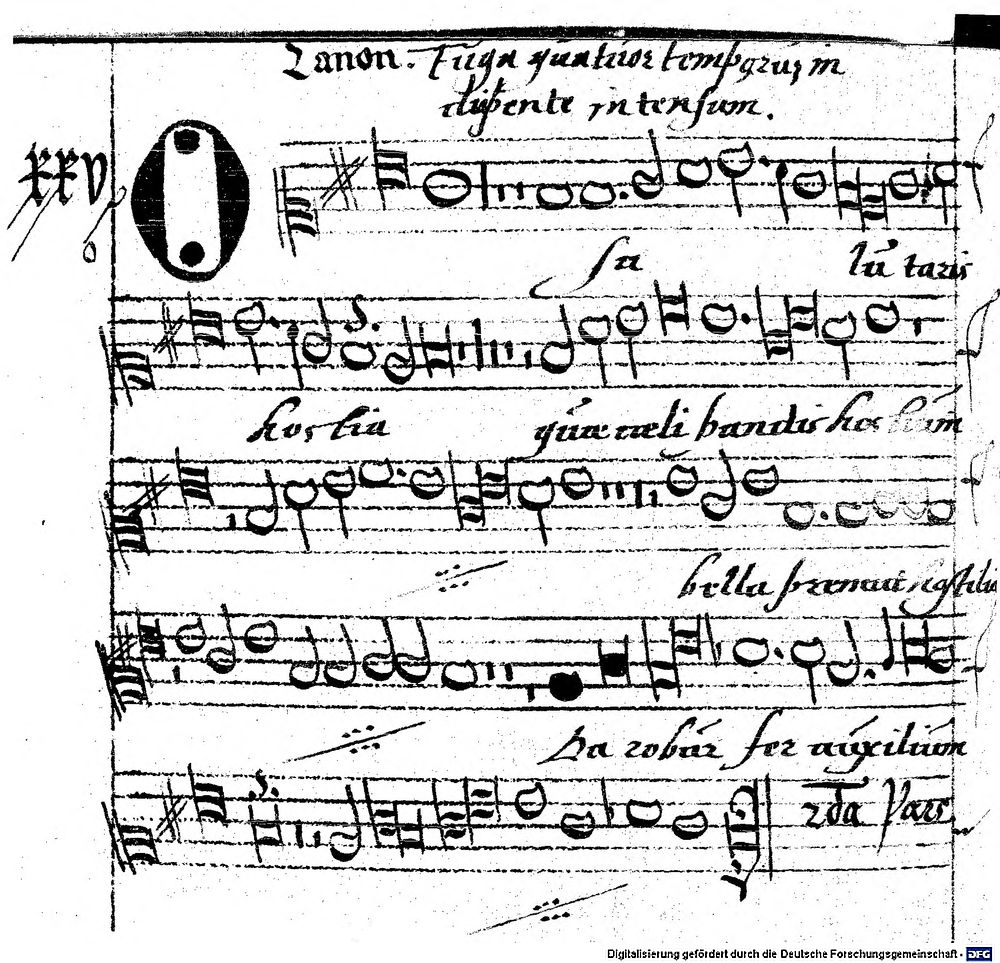 Canon. Fuga quatuor temporū, in
dyapente intensum.
xxv
O
sa lu taris
hostia quae caeli pandis hostium
bella premunt hostilia
Da robur fer auxilium
2da Pars
Digitalisierung gefördert durch die Deutsche Forschungsgemeinschaft - DFG